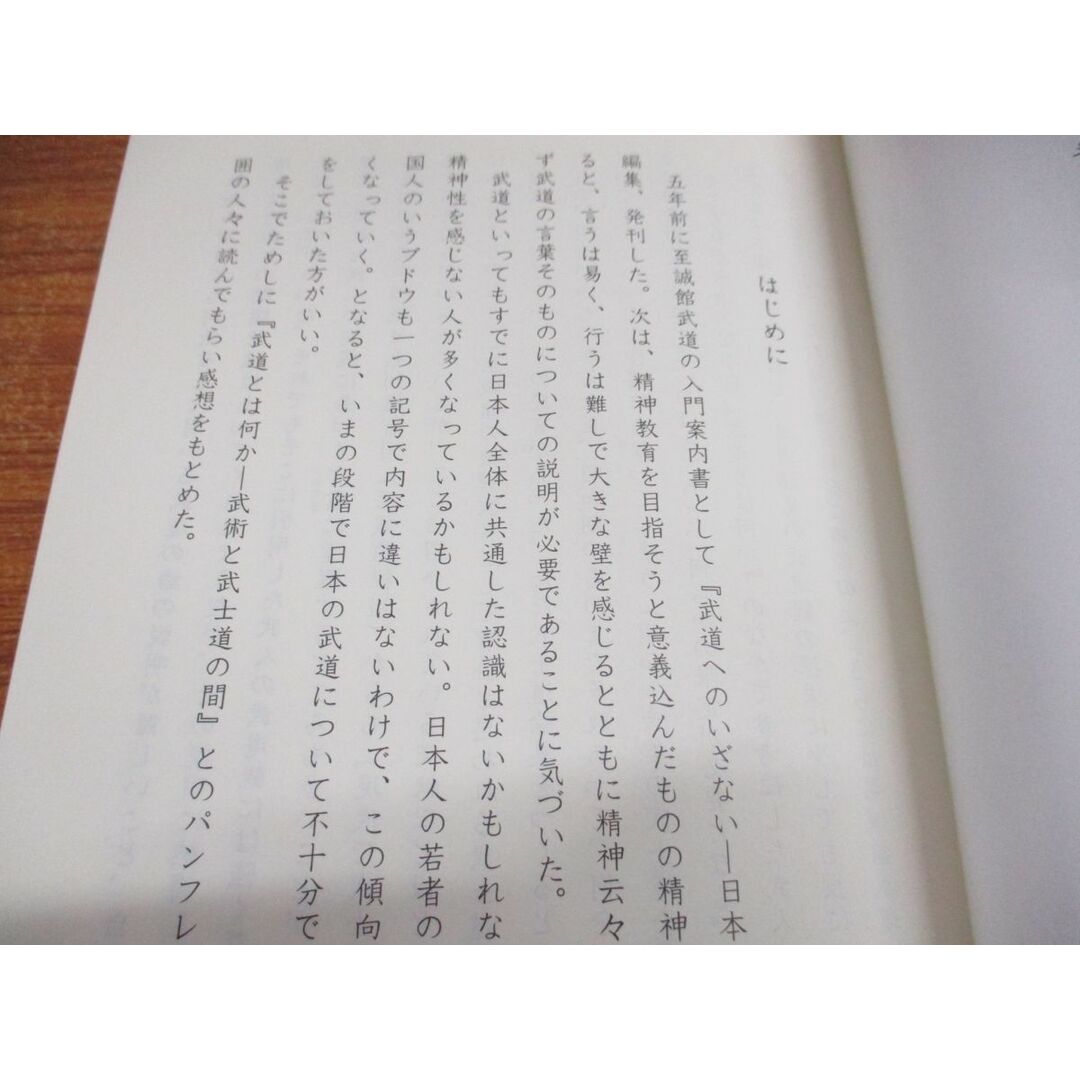 はじめに
五年前に至誠館武道の入門案内書として『武道へのいざない―日本
編集、発刊した。次は、精神教育を目指そうと意義込んだものの精神
ると、言うは易く、行うは難しで大きな壁を感じるとともに精神云々
ず武道の言葉そのものについての説明が必要であることに気づいた。
武道といってもすでに日本人全体に共通した認識はないかもしれな
精神性を感じない人が多くなっているかもしれない。日本人の若者の
国人のいうブドウも一つの記号で内容に違いはないわけで、この傾向
くなっていく。となると、いまの段階で日本の武道について不十分で
をしておいた方がいい。
そこでためしに『武道とは何か―武術と武士道の間』とのパンフレ
囲の人々に読んでもらい感想をもとめた。